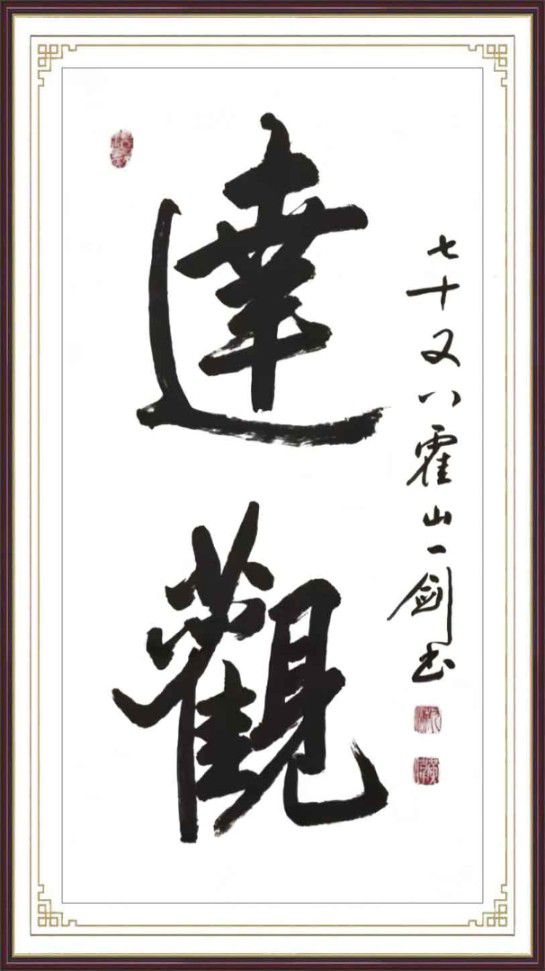 達觀
七十又八霍山一劍書